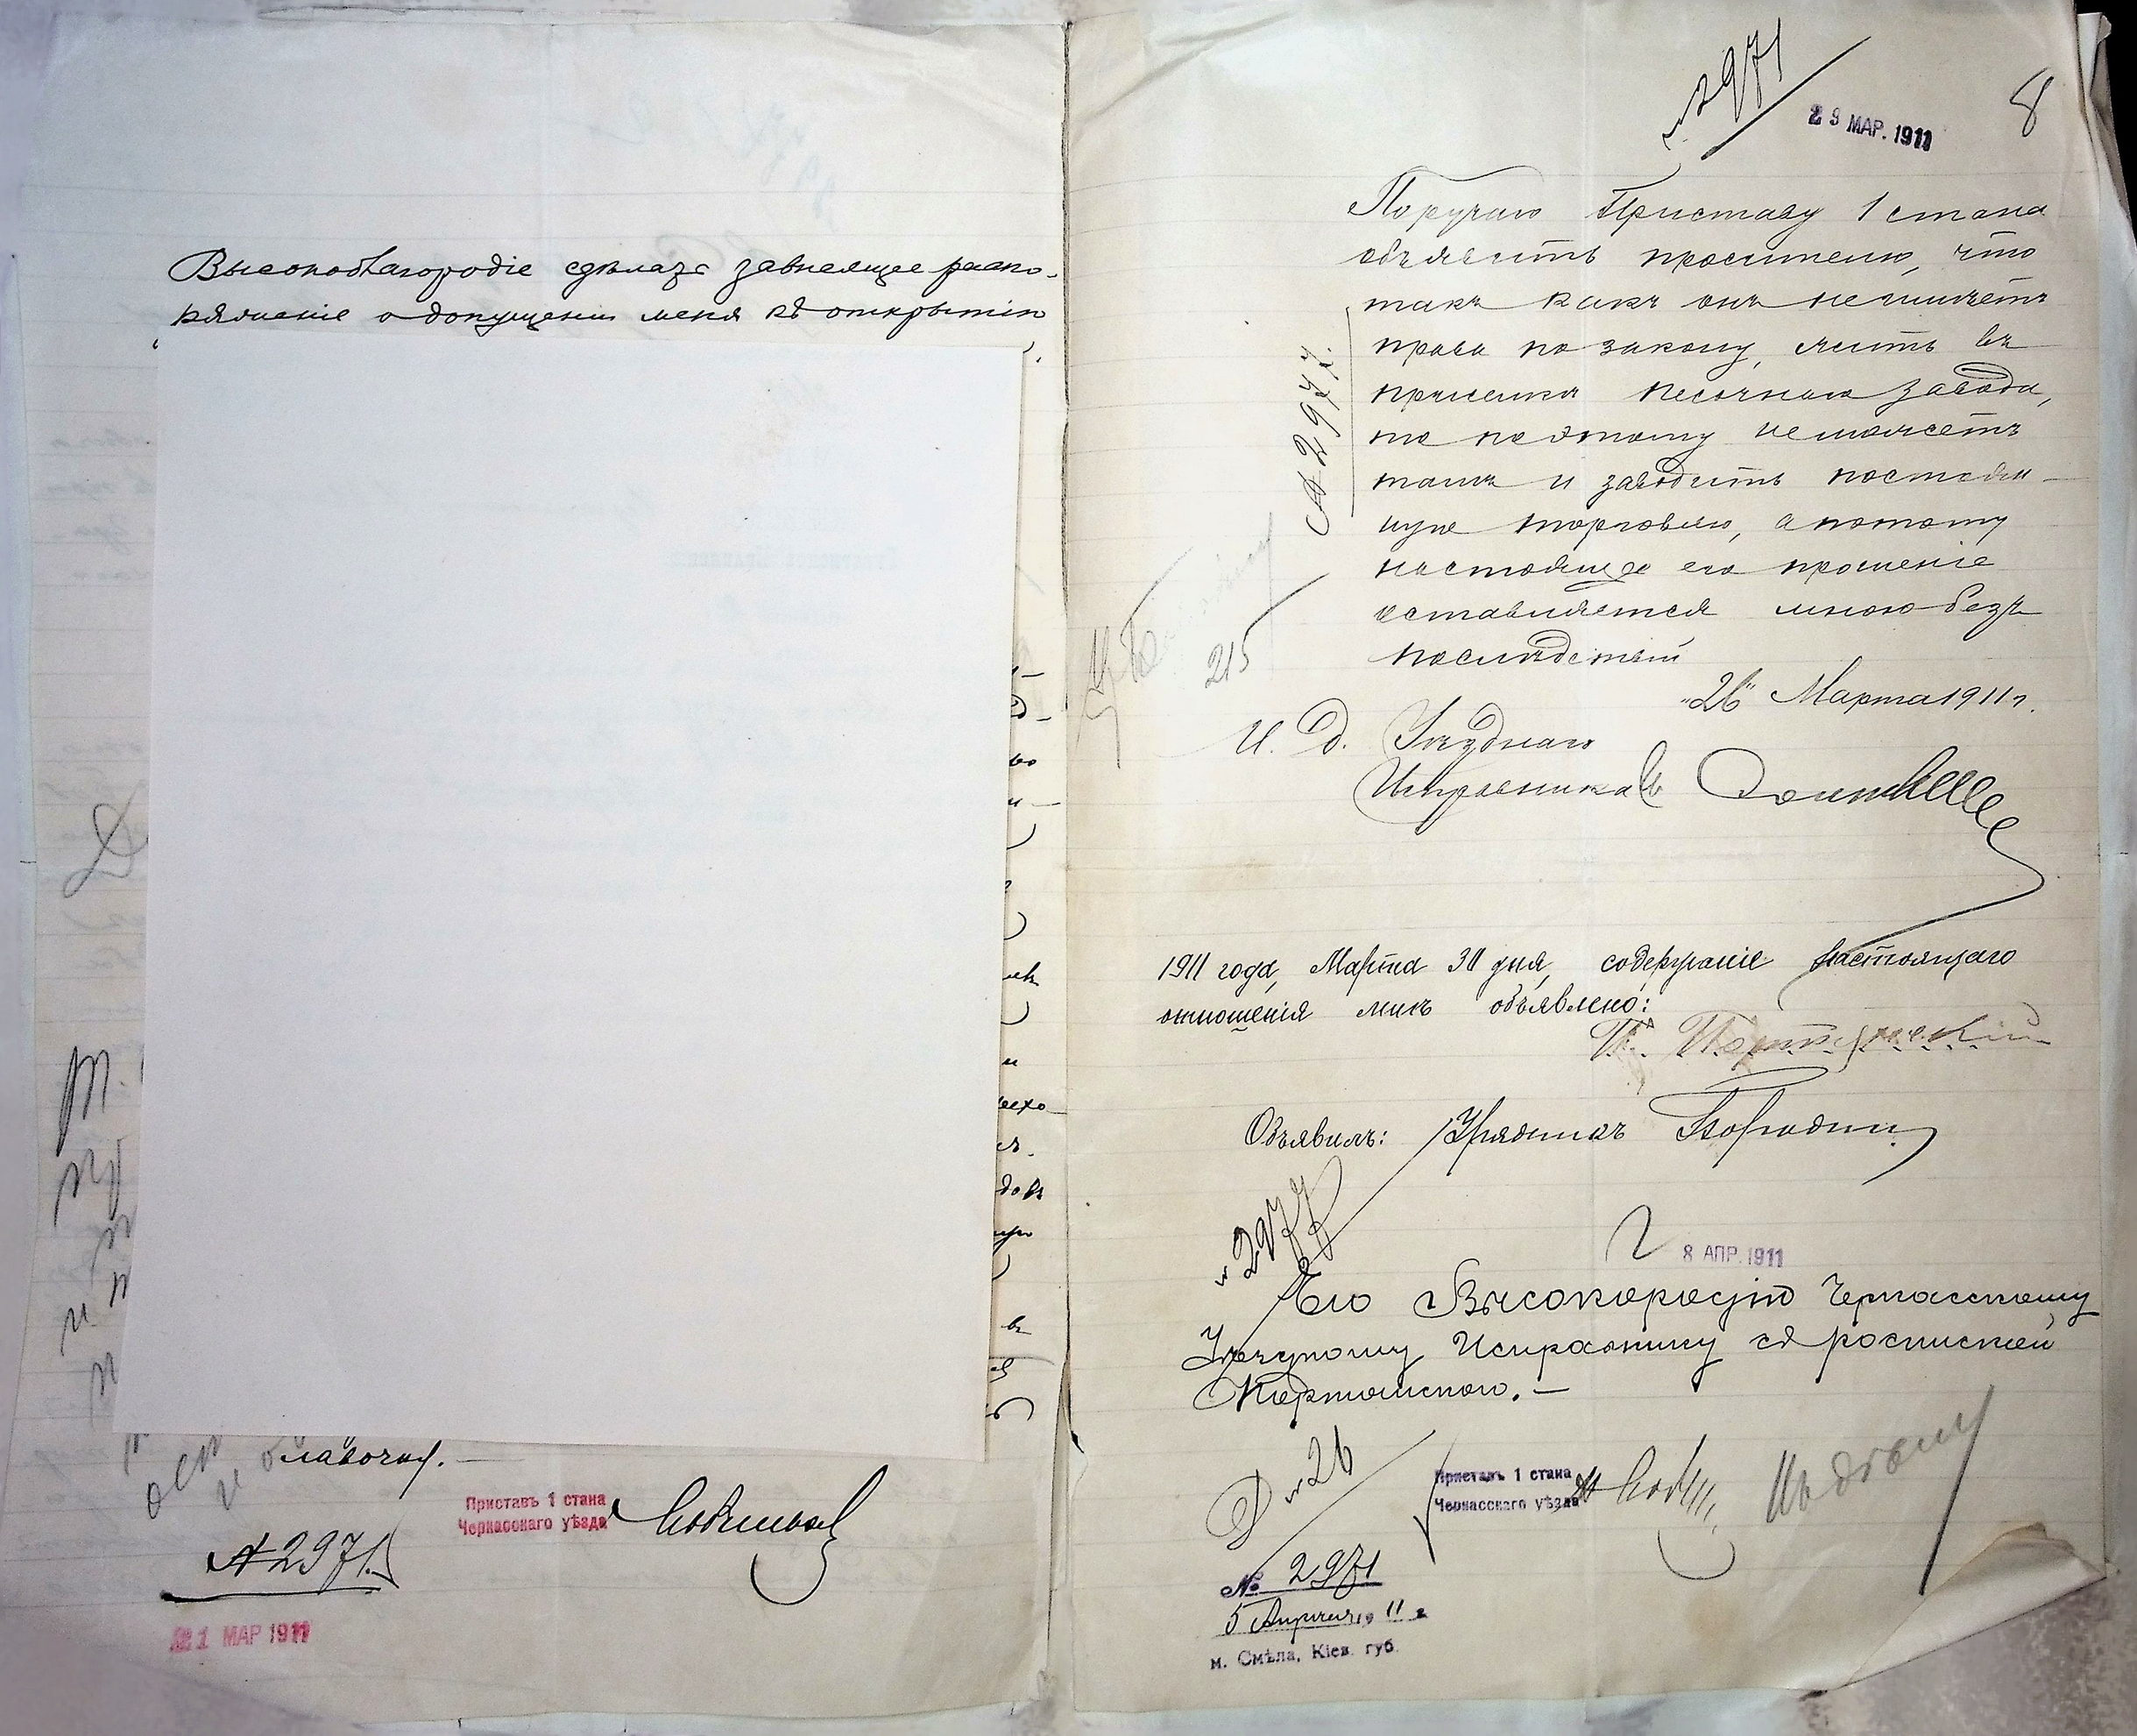 Высокоблагородіе сдѣлать зависящее распо-
ряженіе о допущеніи меня къ открытію
лавочки.
Приставъ 1 стана
Черкасскаго уѣзда
№ 2971
МАР 1911
№ 2971
29 МАР. 1911
8
Поручаю Приставу 1 стана
объявить просителю, что
такъ какъ онъ не имѣетъ
права по закону, жить въ
поселкѣ Песочнаго завода,
то поэтому не можетъ
тамъ и заводить постоян-
ную торговлю, а потому
настоящее его прошеніе
оставляется мною безъ
послѣдствій
"26" Марта 1911 г.
И. Д. Уѣзднаго
Исправника
№ 2971.
215
1911 года, Марта 30 дня, содержаніе настоящаго
отношенія мнѣ объявлено:
Объявилъ: Урядникъ Бородин
№ 2977
8 АПР. 1911
Его Высокородію Черкасскому
Уѣздному Исправнику съ роспиской
№ 26
Приставъ 1 стана
Черкасскаго уѣзда
Къ дѣлу
№ 2971
5 Апрѣля 1911 г.
м. Смѣла, Кіев. губ.